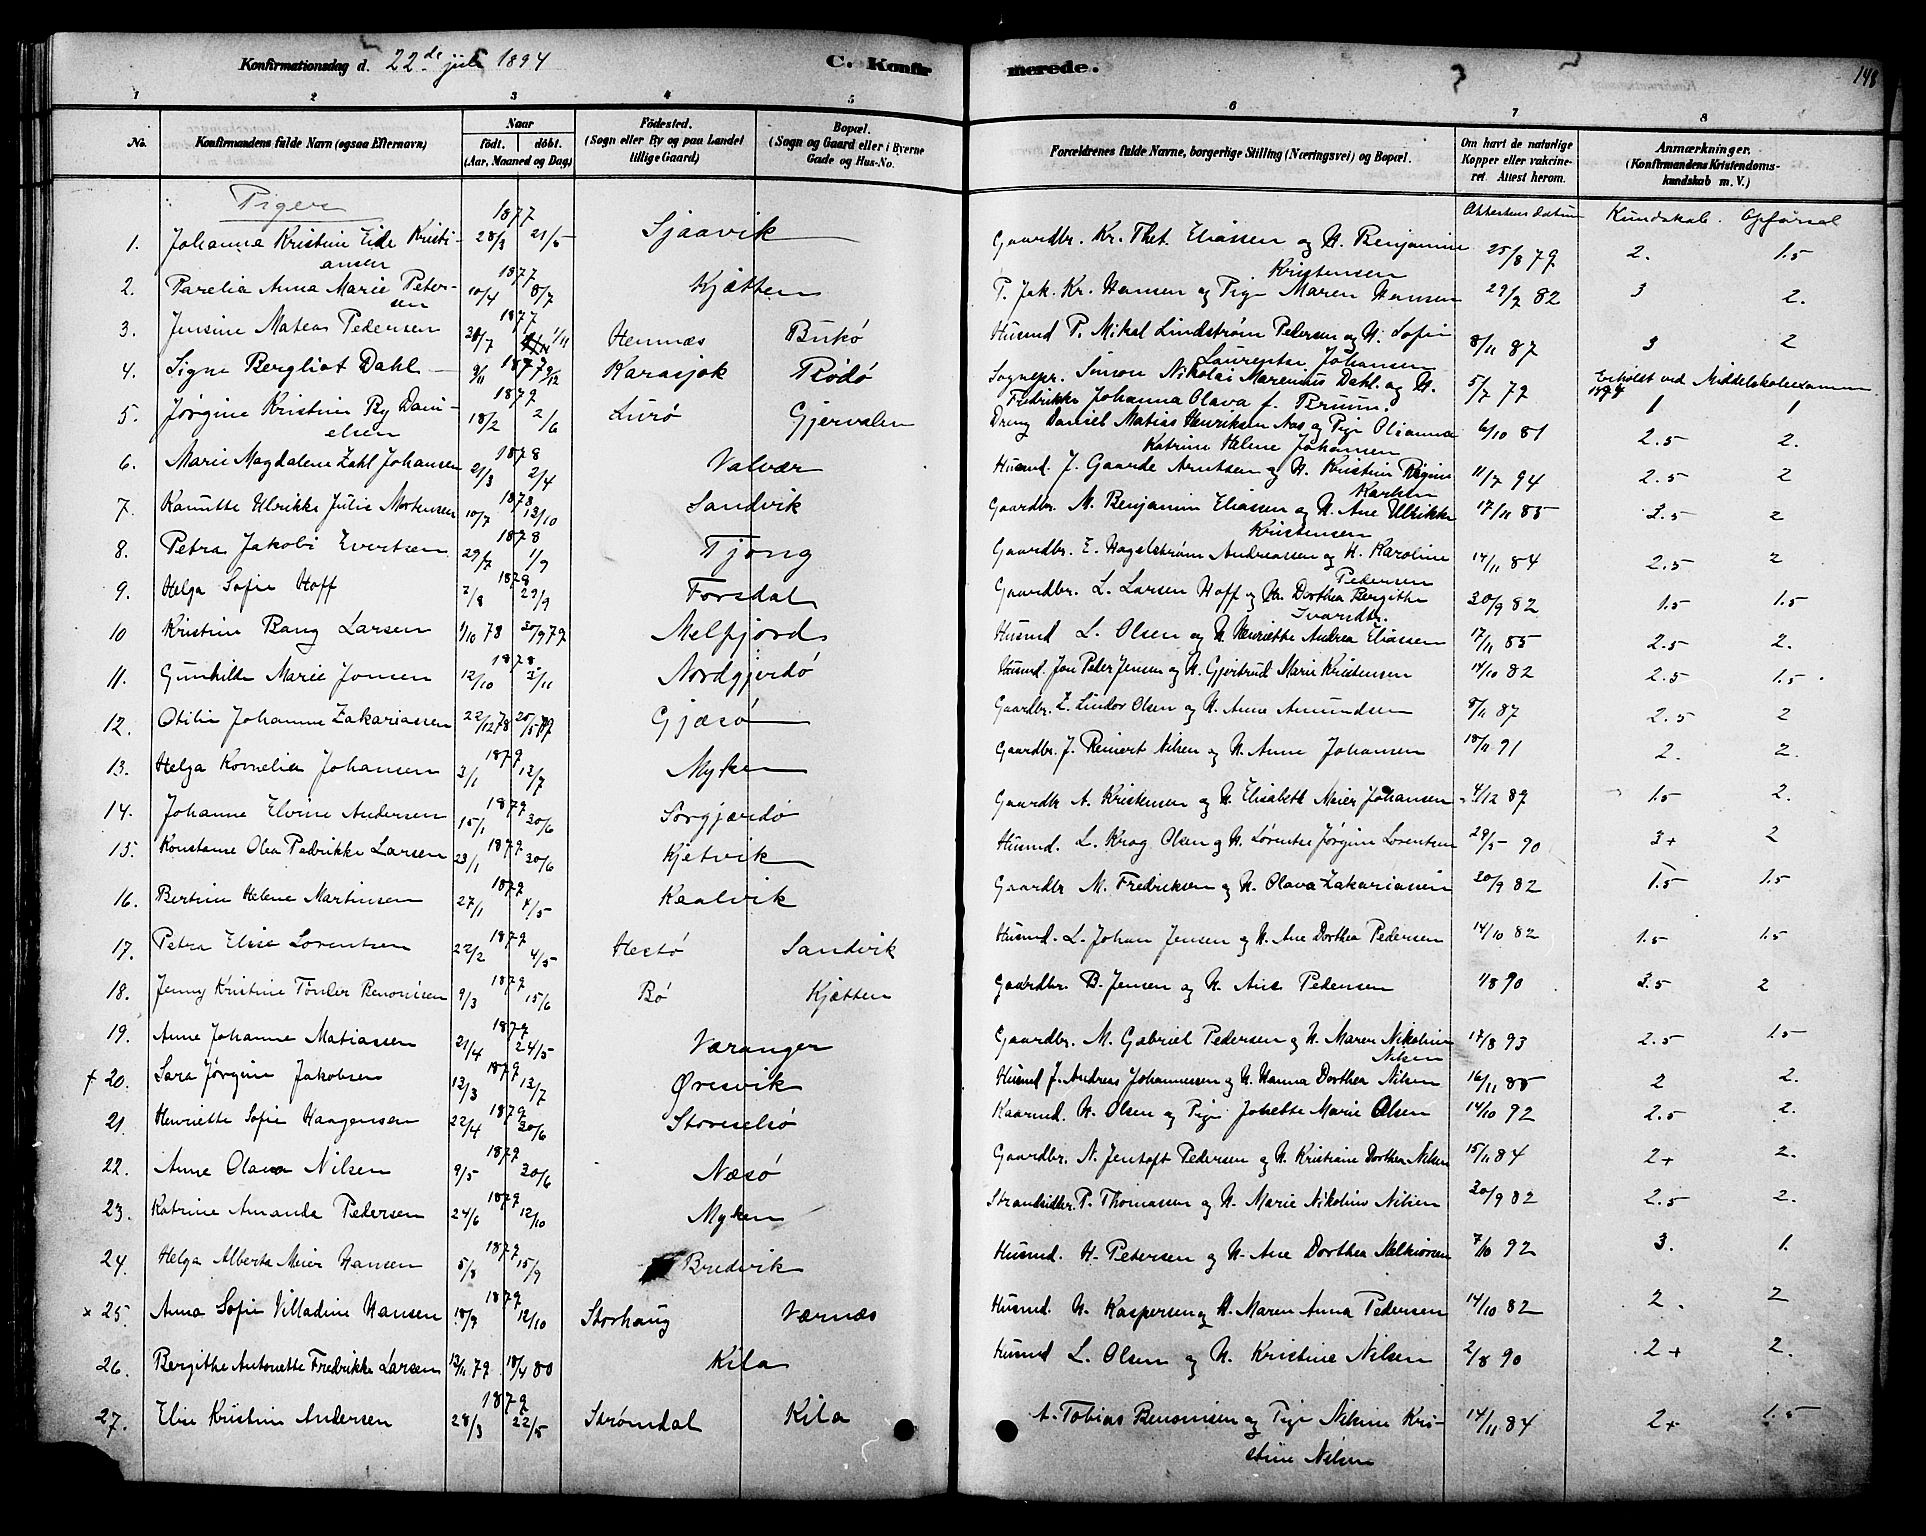 Konfirmationsdag d. 22de juli 1894 C. Konfir merede. 148
1 2 3 4 5 6 7 8
No. Konfirmandens fulde Navn (ogsaa Efternavn) Naar födt. döbt. (Aar, Maaned og Dag) Födested. (Sogn eller By og paa Landet tillige Gaard) Bopæl. (Sogn og Gaard eller i Byerne Gade og Hus-No. Forældrenes fulde Navne, borgerlige Stilling (Næringsvei) og Bopæl. Om havt de naturlige Kopper eller vakcineret. Attest herom. Anmærkninger. (Konfirmandens Kristendomskundskab m. V.)
Piger Attestens datum Kundskab. Opførsel
1. Johanna Kristine Eide Kristiansen 1877 28/3 21/5 Sjaavik Gaardbr. Kr. Thet. Eliassen og H. Benjamine Kristensen 25/8 79 2. 1.5
2. Parelia Anna Marie Petersen 1877 10/4 8/7 Kjætten P. Jak. Kr. Hansen og Pige Maren Hansen 29/2 82 3 2.
3. Jensine Matea Pedersen 1877 30/7 1/11 Hemnæs Bukö Husmd P. Mikal Lindstrøm Pedersen og H. Sofie Laurentse Johansen 8/11 87 3 2
4. Signe Bergliot Dahl 1877 9/11 9/12 Karasjok Rödö Sognepr. Simon Nikolai Marenius Dahl og H. Fredrikke Johanna Olava f. Bruun. 5/7 79 Erholdt ved Middelskoleexamen 1 1
5. Jørgine Kristine By Danielsen 1879 18/2 2/6 Lurø Gjervalen Dreng Daniel Matias Henriksen Aas og Pige Olianna Katrine Helene Johansen 6/10 81 2.5 2.
6. Marie Magdalene Zahl Johansen 1878 21/3 2/4 Valvær Husmd. J. Gaarde Arntsen og H. Kristine Regine Karlsen 11/7 94 2.5 2
7. Kanutte Ulrikke Julie Mortensen 1878 10/7 13/10 Sandvik Gaardbr. M. Benjamin Eliassen og H. Ane Ulrikke Kristensen 17/11 85 2.5 2
8. Petra Jakobi Evertsen 1878 29/7 1/9 Tjong Gaardbr. E. Hagelstrøm Andreassen og H. Karoline Pedersen 14/11 84 2.5 2
9. Helga Sofie Hoff 1878 2/8 29/9 Forsdal Gaardbr. L. Larsen Hoff og H. Dorthea Bergithe Ivarsdtr. 30/9 82 1.5 1.5
10 Kristine Bang Larsen 1/10 78 20/9 79 Melfjord Husmd L. Olsen og H Henriette Andrea Eliassen 17/11 85 2.5 2.
11. Gunhilde Marie Jonsen 1878 12/10 2/11 Nordgjerdö Husmd. Jon Peder Jensen og H. Gjertrud Marie Kristensen 14/10 82 2.5 1.5
12. Otilie Johanne Zakariassen 22/12 78 25/5 79 Gjæsö Gaardbr. Z. Lindor Olsen og H. Anne Amundsen 8/11 87 2.5 2
13. Helga Kornelia Johansen 1879 3/1 13/7 Myken Gaardbr. J. Reinert Nilsen og H. Anne Johansen 18/11 91 2. 2.
14. Johanne Elvine Andersen 1879 15/1 30/6 Sörgjærdö Gaardbr A. Kristensen og H. Elisabeth Meier Johansen 4/12 89 1.5 2.
15. Konstanse Olea Pedrikke Larsen 1879 23/1 30/6 Kjetvik Husmd. L. Krog Olsen og H. Lorentse Jørgine Lorentsen 29/5 90 3+ 2
16. Bertine Helene Martinsen 1879 27/1 4/5 Kaalvik Gaardbr M. Fredriksen og H. Olava Zakariassen 20/9 82 1.5 1.5
17. Petra Elise Lorentsen 1879 22/2 4/5 Hestö Sandvik Husmd. L. Johan Jensen og H. Ane Dorthea Pedersen 14/10 82 1.5 1.5
18. Jenny Kristine Tönder Benonisen 1879 9/3 15/6 Bö Kjætten Gaardbr. B. Jensen og H. Ane Pedersen 1/8 90 3.5 2
19. Anne Johanne Matiassen 1879 21/4 24/5 Væranger Gaardbr. M. Gabriel Pedersen og H. Maren Nikoline Nilsen 17/8 93 2.5 1.5
† 20. Sara Jörgine Jakobsen 1879 12/3 13/7 Øresvik Husmd J. Andreas Johannessen og H. Hanna Dorthea Nilsen 16/11 88 2 2.
21. Henriette Sofie Haagensen 1879 22/4 30/6 Storselsö Kaarmd. H. Olsen og Pige Johette Marie Olsen 14/10 92 2.5 2.
22. Anne Olava Nilsen 1879 9/5 30/6 Næsö Gaardbr. N. Jentoft Pedersen og H. Kristiane Dorthea Nilsen 15/11 84 2+ 2.
23. Katrine Amanda Pedersen 1879 24/6 12/10 Myken Strandsidder. P. Thomassen og H. Marie Nikoline Nilsen 30/9 82 2.5 2.
24. Helga Alberta Meier Hansen 1879 5/8 15/9 Bredvik Husmd. H. Petersen og H. Ane Dorthea Melkiorsen 7/10 92 3. 1.
x 25. Anna Sofie Villadine Hansen 1879 18/9 12/10 Storhaug Værnæs Husmd. H. Kaspersen og H. Maren Anna Pedersen 14/10 82 2. 2
26. Bergithe Antonette Fredrikke Larsen 13/11 79 18/4 80 Kila Husmd L. Olsen og H. Kristine Nilsen 2/8 90 2+ 2.
27. Elise Kristine Andersen 1879 28/3 22/5 Strømdal Kila A. Tobias Benonisen og Pige Nilsine Kristine Nilsen 14/11 84 2+ 1.5